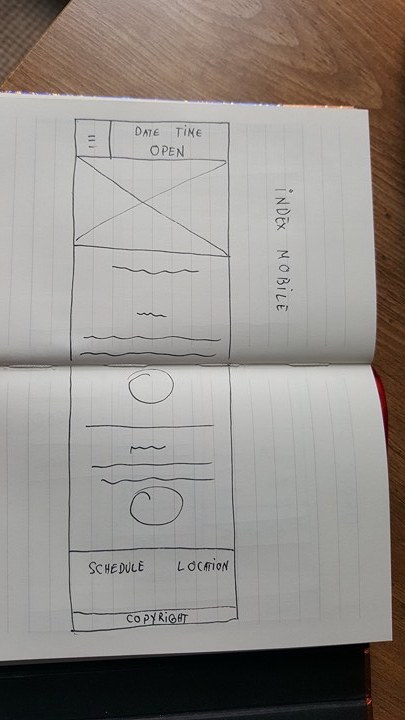 DATE TIME
OPEN
INDEX MOBILE
SCHEDULE LOCATION
COPYRIGHT